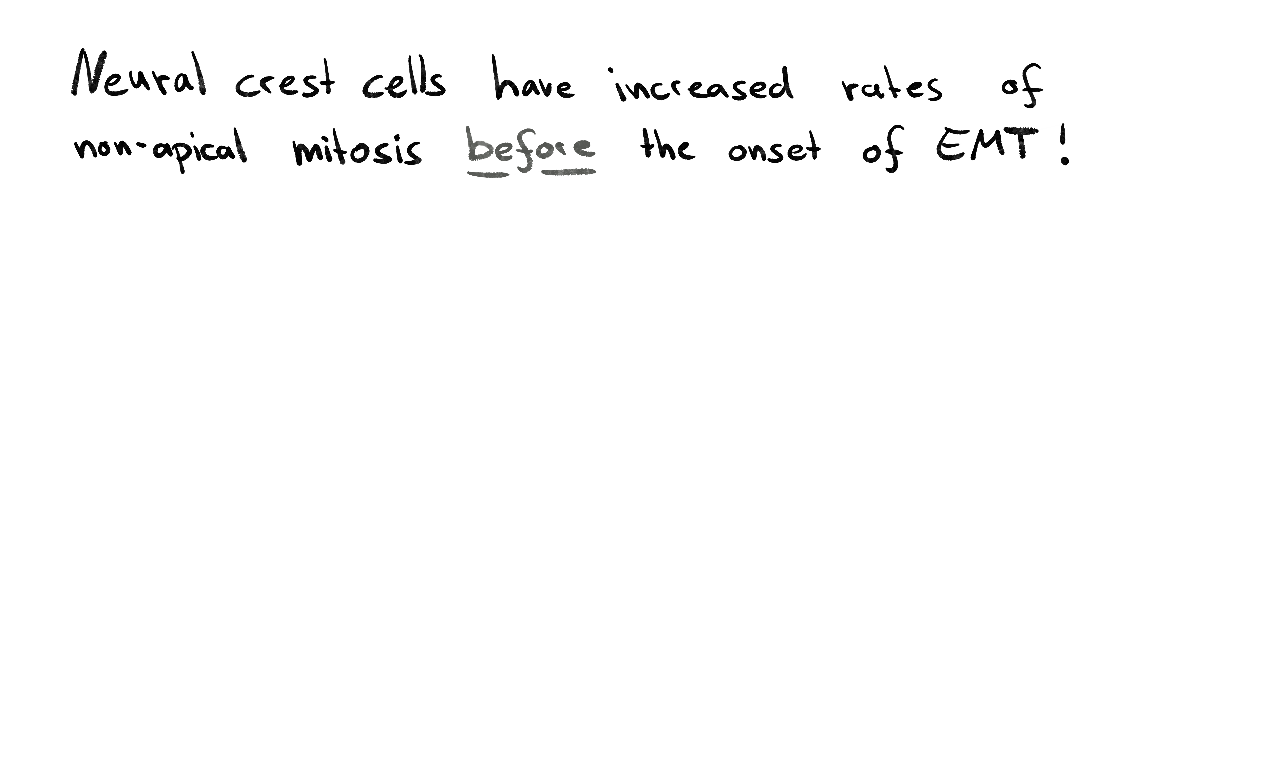 Neural crest cells have increased rates of
non-apical mitosis before the onset of EMT!